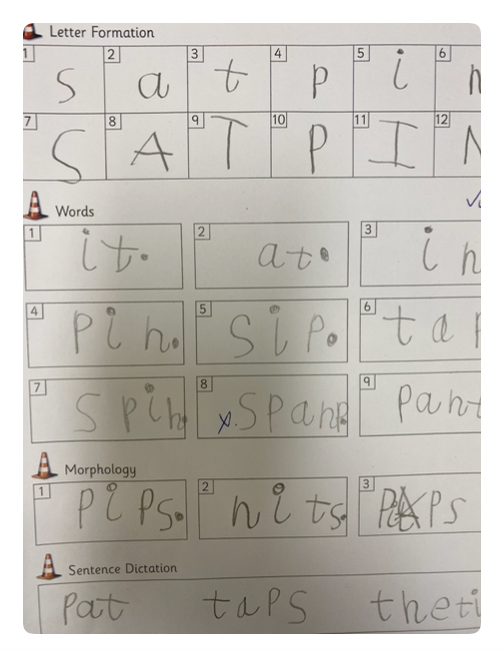 Letter Formation
1 s 2 a 3 t 4 p 5 i 6
7 S 8 A 9 T 10 P 11 I 12 N
Words
1 it. 2 at. 3 in
4 Pin. 5 Sip. 6 tap
7 Spin. 8 x. Spanp. 9 pant
Morphology
1 Pips. 2 nits. 3 Ps
Sentence Dictation
Pat taps the ti